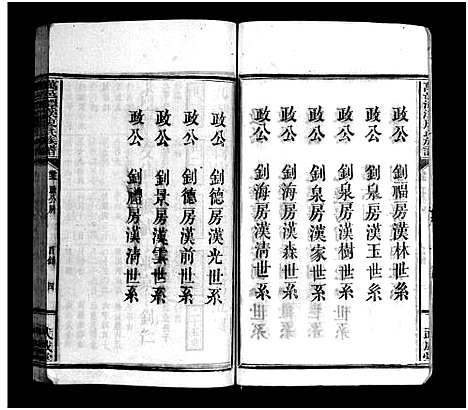 政公 釗福房漢林世系
政公 釗泉房漢玉世系
政公 釗泉房漢樹世系
政公 釗泉房漢家世系
政公 釗海房漢森世系
政公 釗海房漢清世系
政公 釗德房漢光世系
政公 釗德房漢前世系
政公 釗景房漢雲世系
政公 釗福房漢清世系
目錄 四